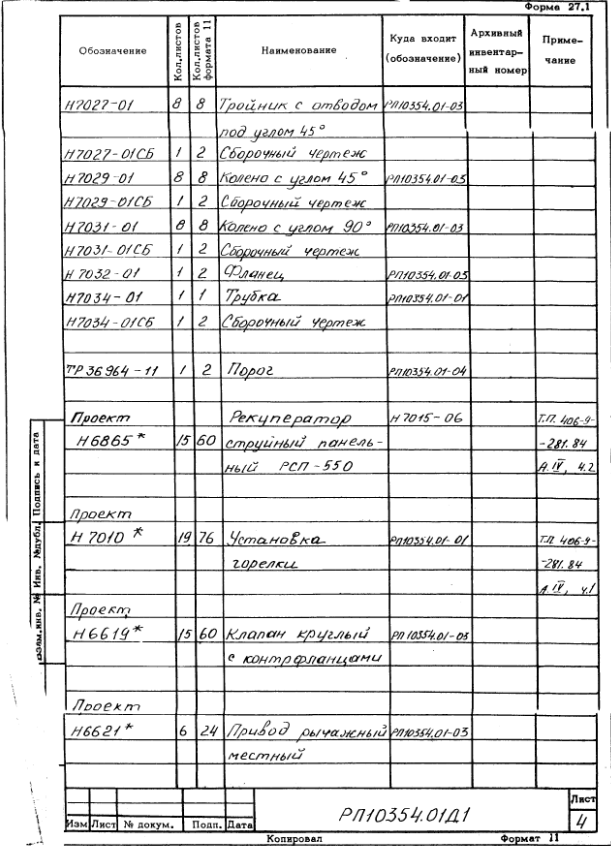 Форма 27.1
Обозначение Кол.листов Кол.листов формата 11 Наименование Куда входит (обозначение) Архивный инвентар-ный номер Приме-чание
Н7027-01 8 8 Тройник с отводом РП10354.01-03
под углом 45°
Н7027-01СБ 1 2 Сборочный чертеж
Н7029-01 8 8 Колено с углом 45° РП10354.01-03
Н7029-01СБ 1 2 Сборочный чертеж
Н7031-01 8 8 Колено с углом 90° РП10354.01-03
Н7031-01СБ 1 2 Сборочный чертеж
Н7032-01 1 2 Фланец РП10354.01-03
Н7034-01 1 1 Трубка РП10354.01-01
Н7034-01СБ 1 2 Сборочный чертеж
ТР36964-11 1 2 Порог РП10354.01-04
Проект Рекуператор Н7015-06 Т.П. 406-9-
Н6865* 15 60 струйный панель- -281.84
ный РСП-550 А.IV, ч.2
Проект
Н7010* 19 76 Установка РП10354.01-01 Т.П. 406-9-
горелки -281.84
А.IV, ч.1
Проект
Н6619* 15 60 Клапан круглый РП10354.01-03
с контрфланцами
Проект
Н6621* 6 24 Привод рычажный РП10354.01-03
местный
Взам.инв. № Инв. №дубл. Подпись и дата
РП10354.01Д1
Лист
4
Изм Лист № докум. Подп. Дата
Копировал Формат 11